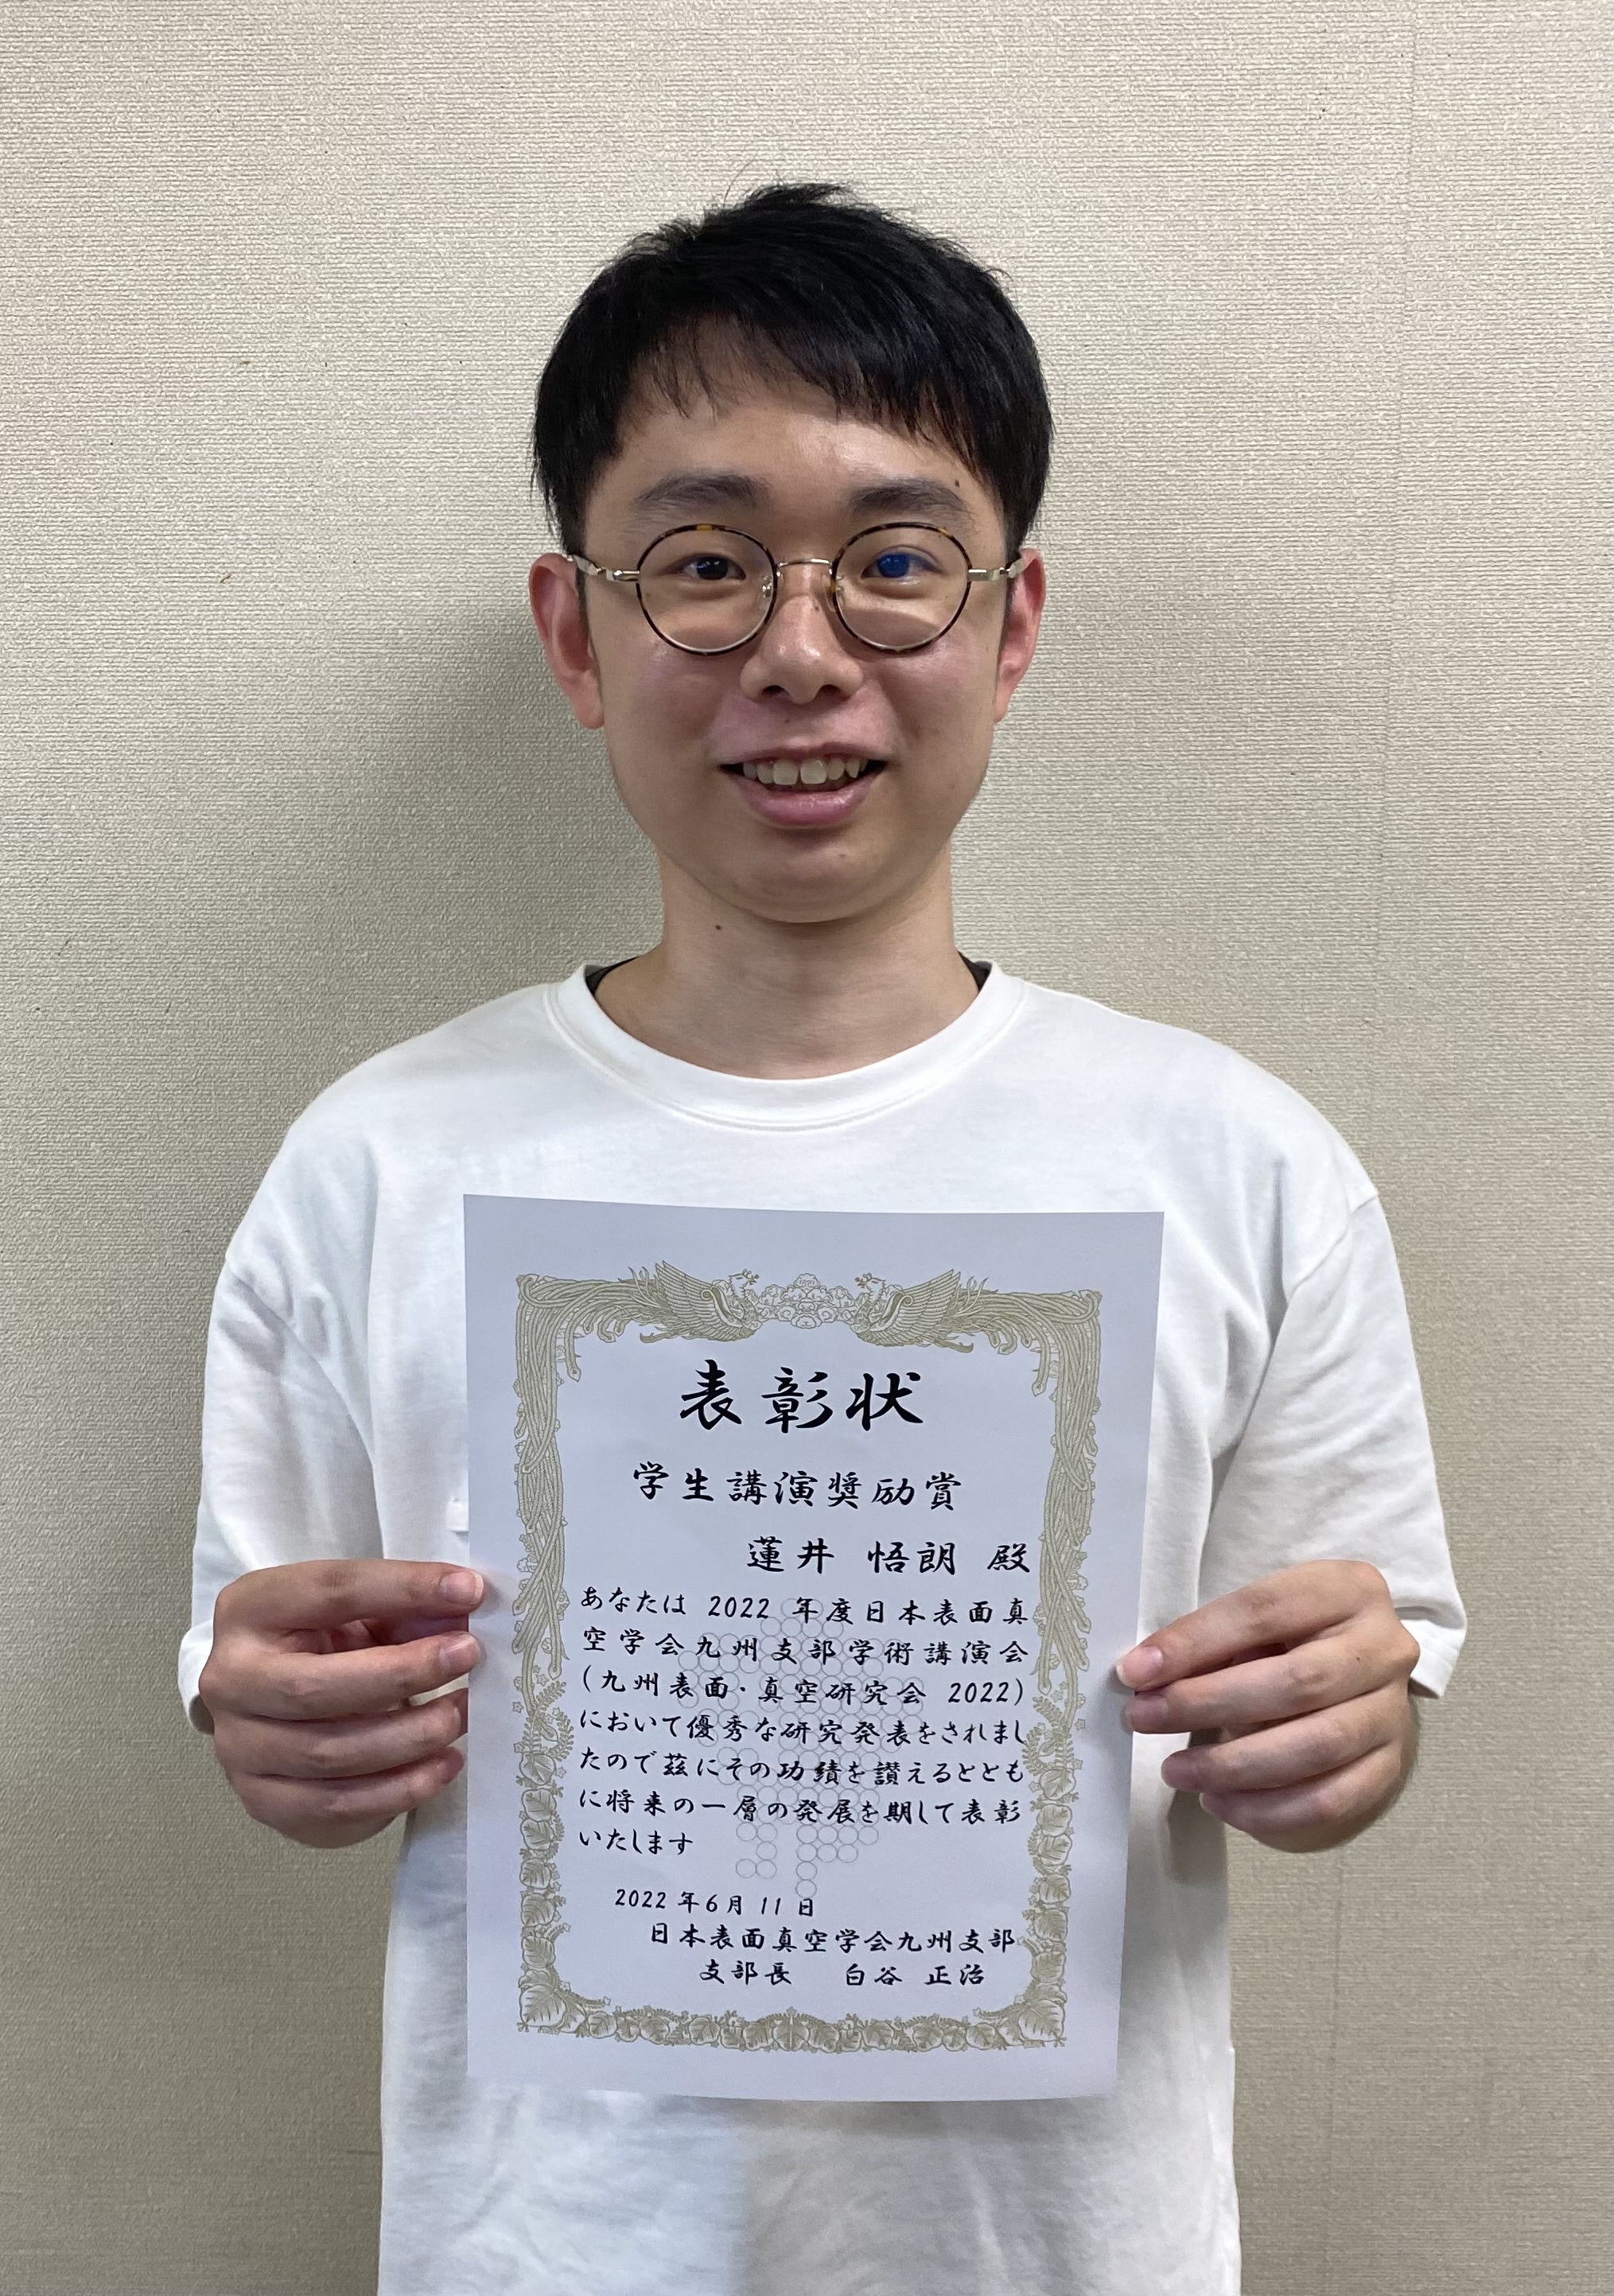 表彰状
学生講演奨励賞
蓮井 悟朗 殿
あなたは 2022 年度日本表面真
空学会九州支部学術講演会
(九州表面・真空研究会 2022)
において優秀な研究発表をされまし
たので茲にその功績を讃えるととも
に将来の一層の発展を期して表彰
いたします
2022 年6月 11 日
日本表面真空学会九州支部
支部長 白谷 正治